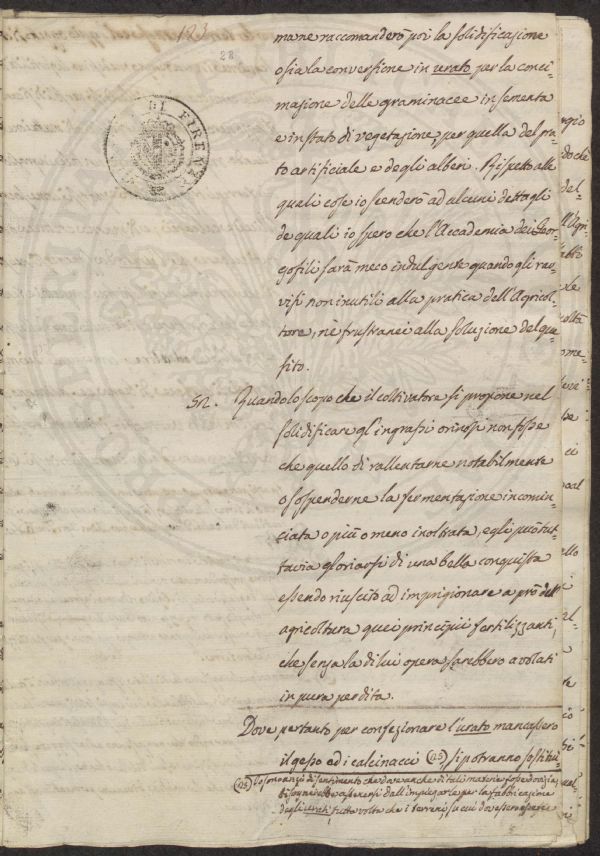 123
28
DI FIRENZE
mane raccomanderò poi la solidificazione
o sia la conversione in urato per la conci-
mazione delle graminacee in sementa
e in stato di vegetazione, per quella del pra-
to artificiale e degli alberi. Rispetto alle
quali cose io scenderò ad alcuni dettagli
de quali io spero che l'Accademia dei Geor-
gofili sarà meco indulgente quando gli rav-
visi non inutili alla pratica dell'Agricol-
tore, nè frustranei alla soluzione del que-
sito.
52. Quando lo scopo che il coltivatore si propone nel
solidificare gl'ingrassi orinosi non fosse
che quello di rallentarne notabilmente
o sospenderne la fermentazione incomin-
ciata o più o meno inoltrata, egli può tut-
tavia gloriarsi di una bella conquista
essendo riuscito ad imprigionare a prò dell'
agricoltura quei principii fertilizzanti,
che senza la di lui opera sarebbero avolati
in pura perdita.
Dove pertanto per confezionare l'urato mancassero
il gesso ed i calcinacci (25) si potranno sostitui-
(25) Io sono anzi di sentimento che dove anche di tali materie fosse dovizia,
bisognerebbe astenersi dall'impiegarle per la fabbricazione
degli urati tutta volta che i terreni, su cui dovessero